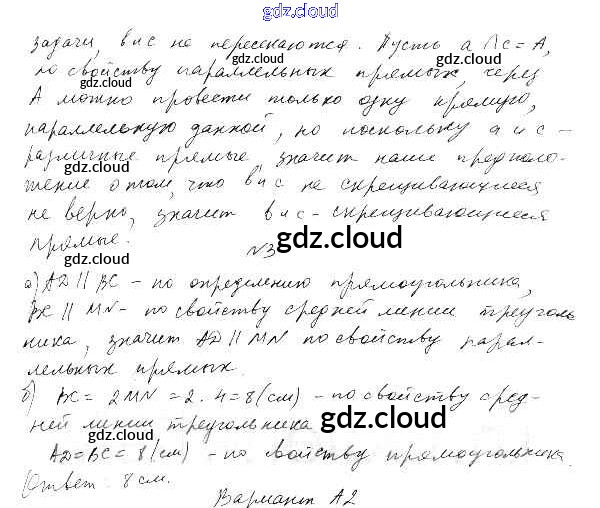 gdz.cloud
задачи, в и с не пересекаются. Пусть a ∩ c = A,
gdz.cloud gdz.cloud
по свойству параллельных прямых, через
A можно провести только одну прямую,
gdz.cloud gdz.cloud
параллельную данной, но поскольку a и c –
различные прямые, значит наше предполо-
gdz.cloud
жение о том, что в и с не скрещивающиеся
не верно, значит в и с – скрещивающиеся
прямые.
N3 gdz.cloud
а) AD || BC – по определению прямоугольника,
BC || MN – по свойству средней линии треуголь
ника, значит AD || MN по свойству парал-
лельных прямых.
gdz.cloud
б) BC = 2MN = 2 · 4 = 8 (см) – по свойству сред-
ней линии треугольника gdz.cloud
AD = BC = 8 (см) – по свойству прямоугольника.
gdz.cloud
Ответ: 8 см.
Вариант А2